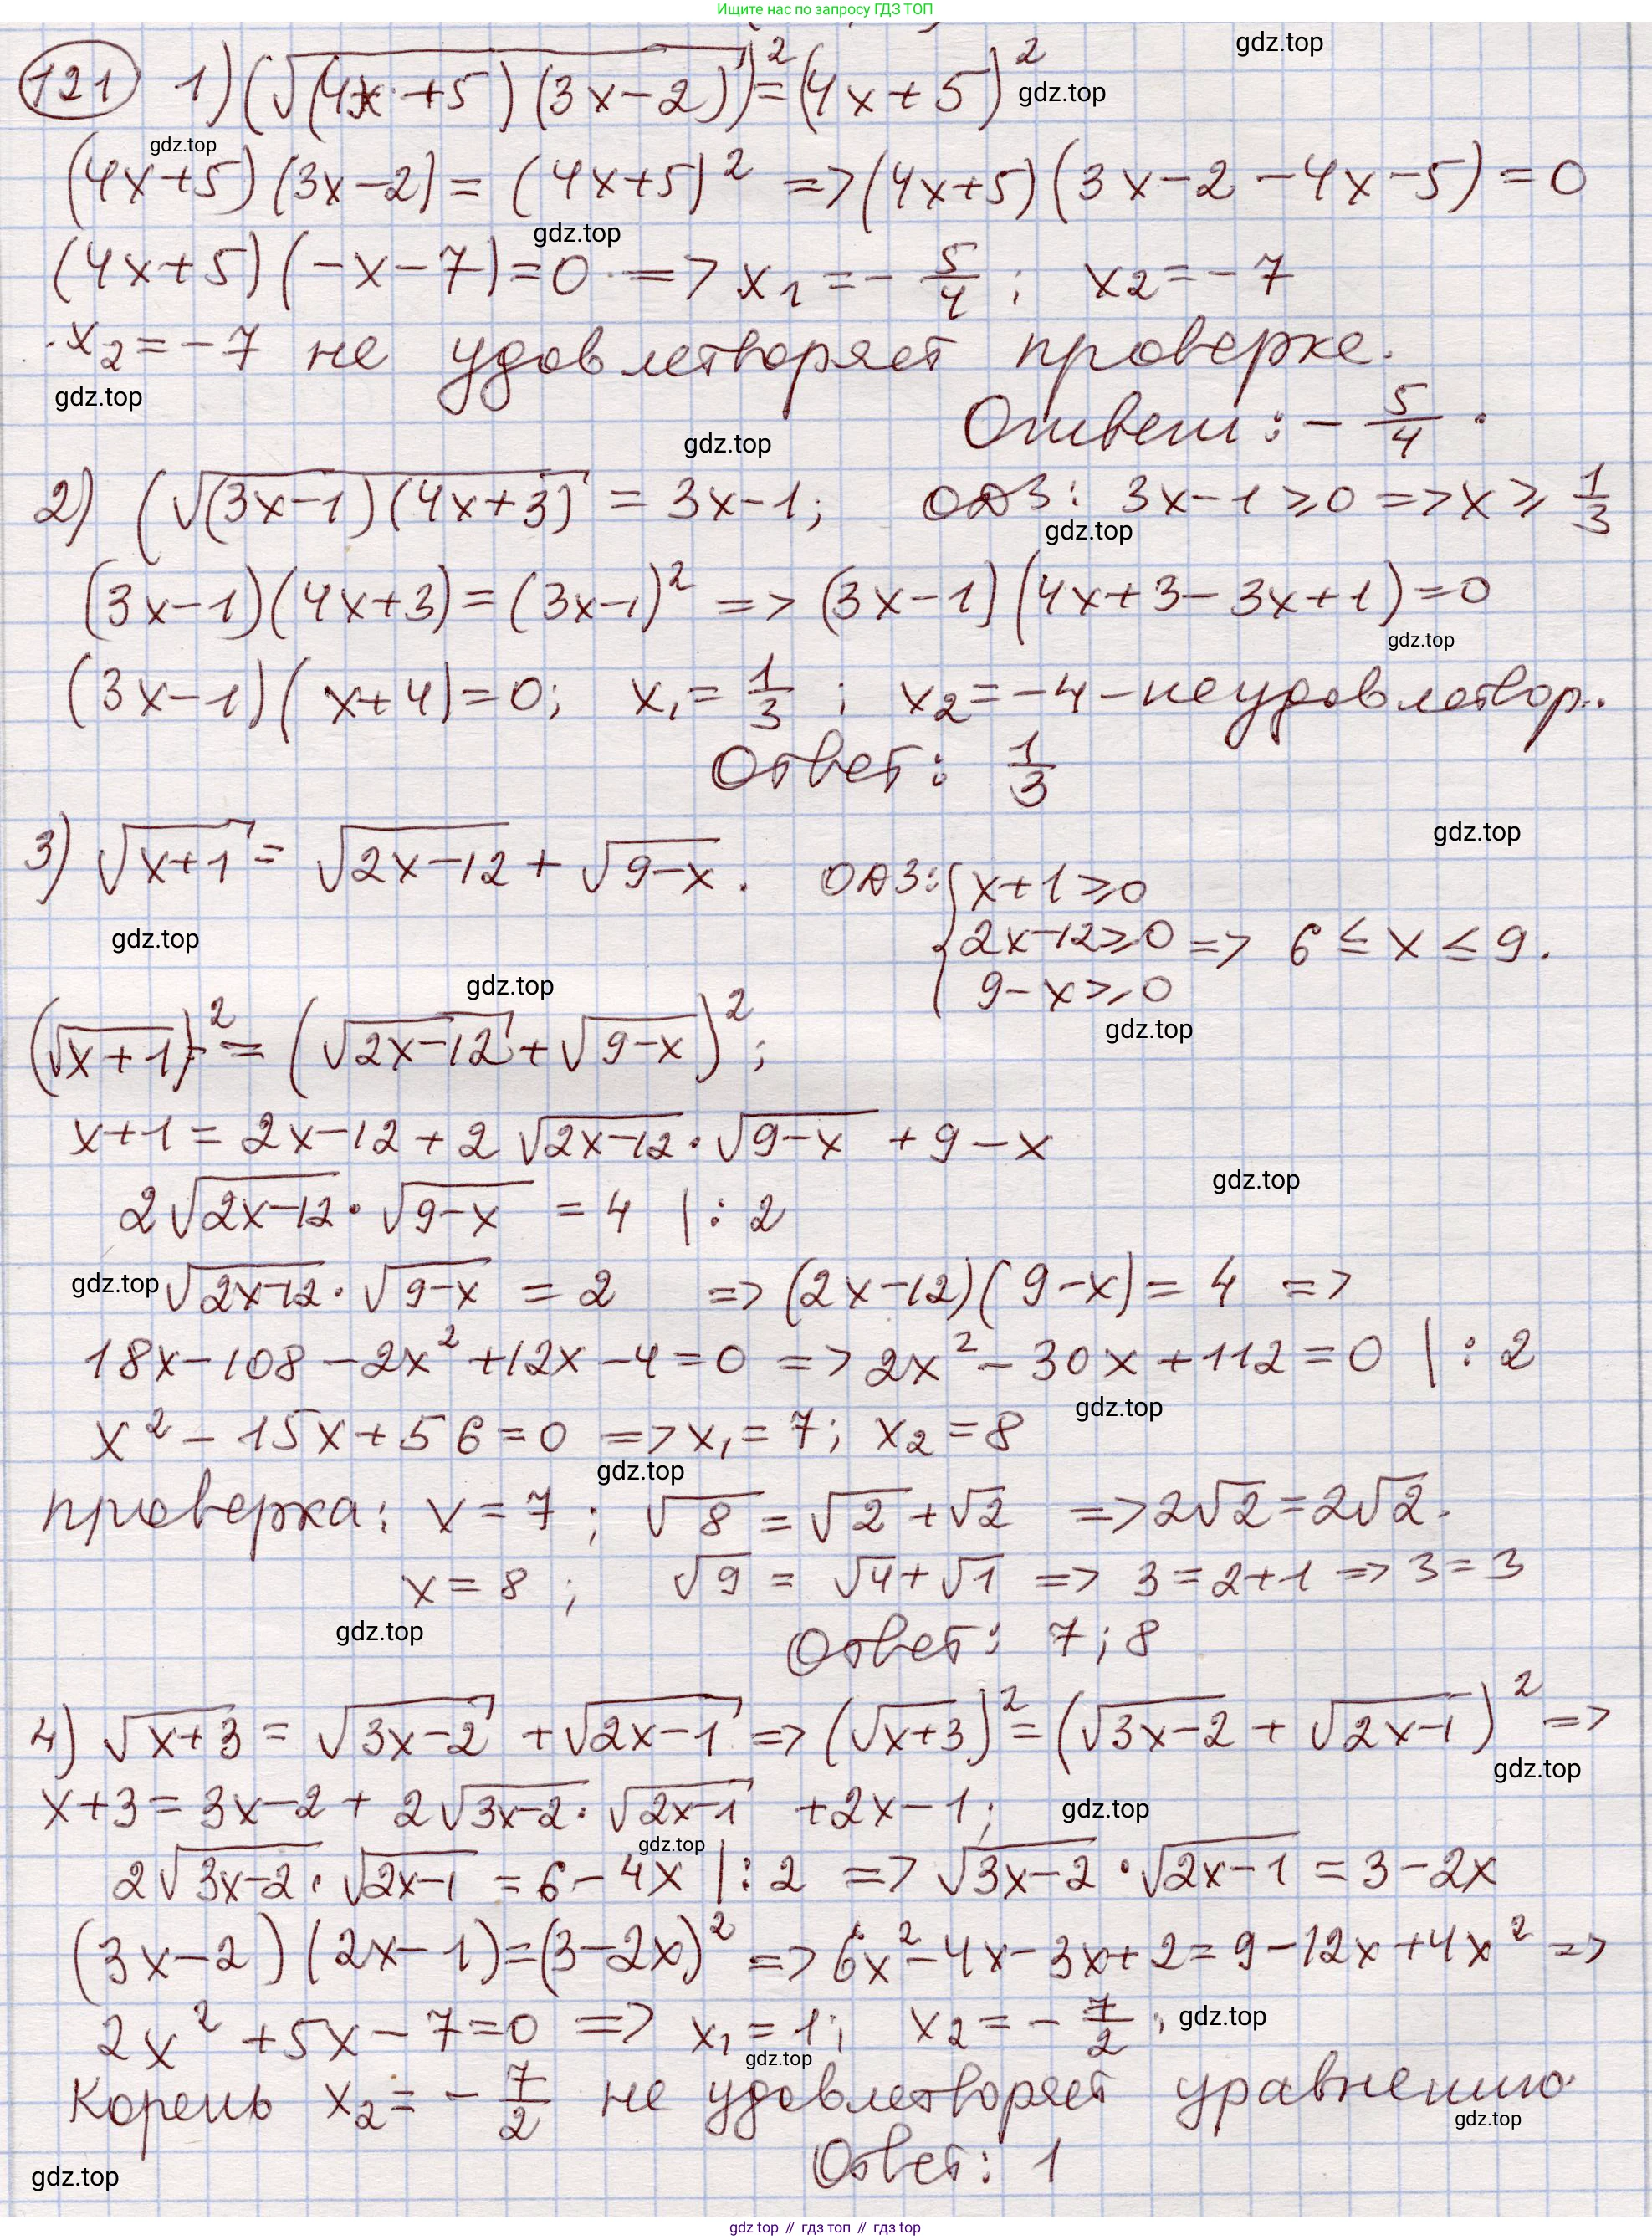 Ищите нас по запросу ГДЗ ТОП
gdz.top
121 1) (√(4x+5)(3x-2))² = (4x+5)² gdz.top
gdz.top
(4x+5)(3x-2) = (4x+5)² => (4x+5)(3x-2-4x-5)=0
gdz.top
(4x+5)(-x-7)=0 => x₁=-5/4; x₂=-7
x₂=-7 не удовлетворяет проверке.
gdz.top
Ответ: -5/4.
gdz.top
2) (√(3x-1)(4x+3) = 3x-1; ОДЗ: 3x-1≥0 => x≥1/3
gdz.top
(3x-1)(4x+3)=(3x-1)² => (3x-1)(4x+3-3x+1)=0
gdz.top
(3x-1)(x+4)=0; x₁=1/3; x₂=-4 - неудовлетвор.
Ответ: 1/3
gdz.top
3) √x+1 = √2x-12 + √9-x. ОДЗ: { x+1≥0
2x-12≥0 => 6≤x≤9.
9-x≥0
gdz.top
gdz.top
gdz.top
(√x+1)² = (√2x-12 + √9-x)²;
x+1=2x-12+2√2x-12·√9-x +9-x
gdz.top
2√2x-12·√9-x = 4 |:2
gdz.top √2x-12·√9-x = 2 => (2x-12)(9-x)=4 =>
18x-108-2x²+12x-4=0 => 2x²-30x+112=0 |:2
gdz.top
x²-15x+56=0 => x₁=7; x₂=8
gdz.top
проверка: x=7; √8=√2+√2 => 2√2=2√2.
x=8; √9=√4+√1 => 3=2+1 => 3=3
gdz.top
Ответ: 7;8
4) √x+3 = √3x-2 + √2x-1 => (√x+3)²=(√3x-2 + √2x-1)² =>
gdz.top
x+3=3x-2+2√3x-2·√2x-1 +2x-1; gdz.top
gdz.top
2√3x-2·√2x-1 = 6-4x |:2 => √3x-2·√2x-1 = 3-2x
(3x-2)(2x-1)=(3-2x)² => 6x²-4x-3x+2=9-12x+4x² =>
2x²+5x-7=0 => x₁=1; x₂=-7/2; gdz.top
gdz.top
Корень x₂=-7/2 не удовлетворяет уравнению
gdz.top
Ответ: 1
gdz.top
gdz top // гдз топ // gdz.top